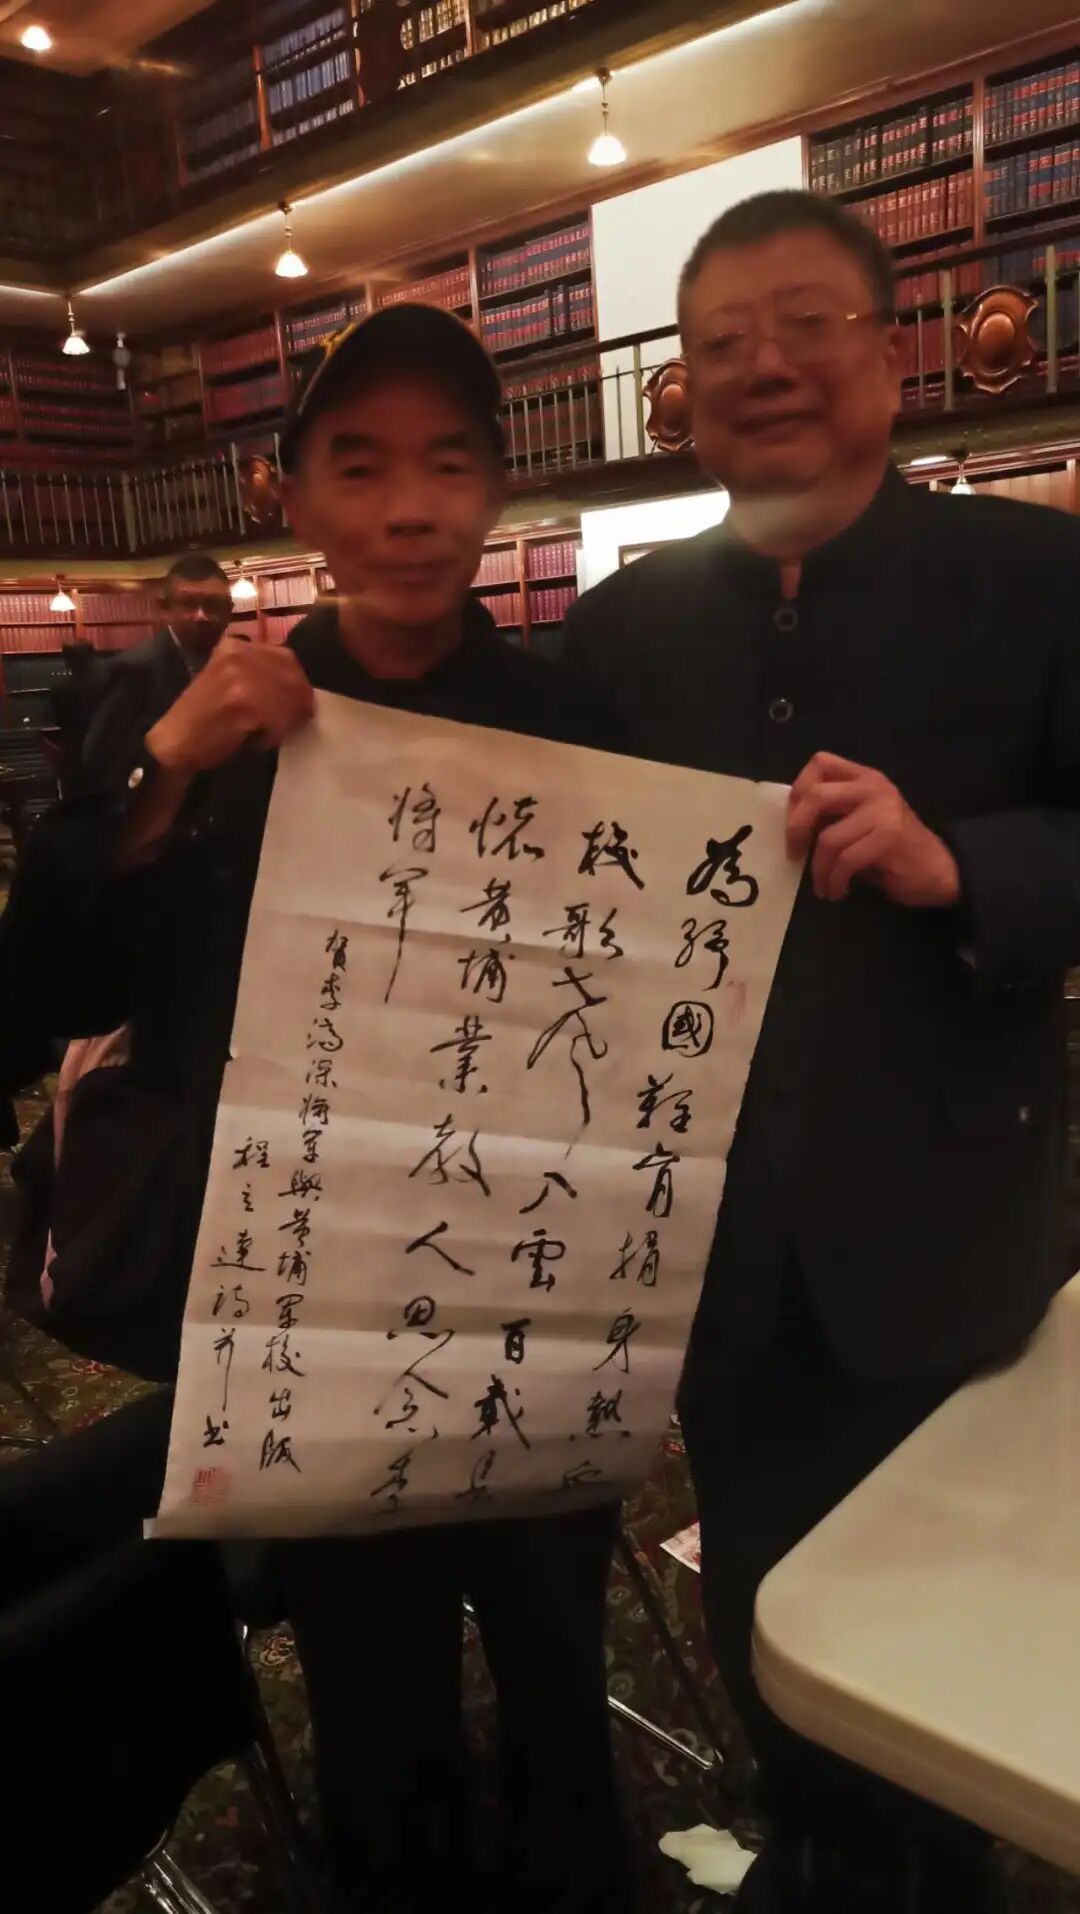 為紓國難肯捐身熱血
校歌飛入雲百載長
懷黃埔業教人思念李
將軍
賀李濟深將軍與黃埔軍校出版
程立達詩并书